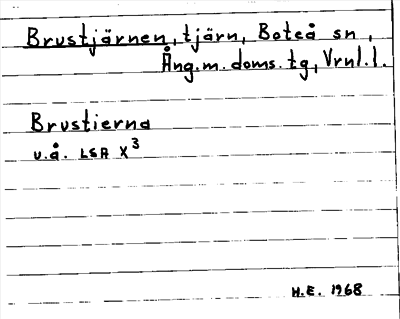 Brustjärnen, tjärn, Boteå sn,
Ång.m. doms. tg, Vrnl.l.
Brustierna
u.å. LSA X³
H.E. 1968